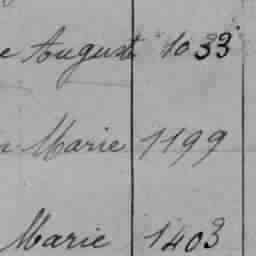 August 1033
Marie 1199
Marie 1403